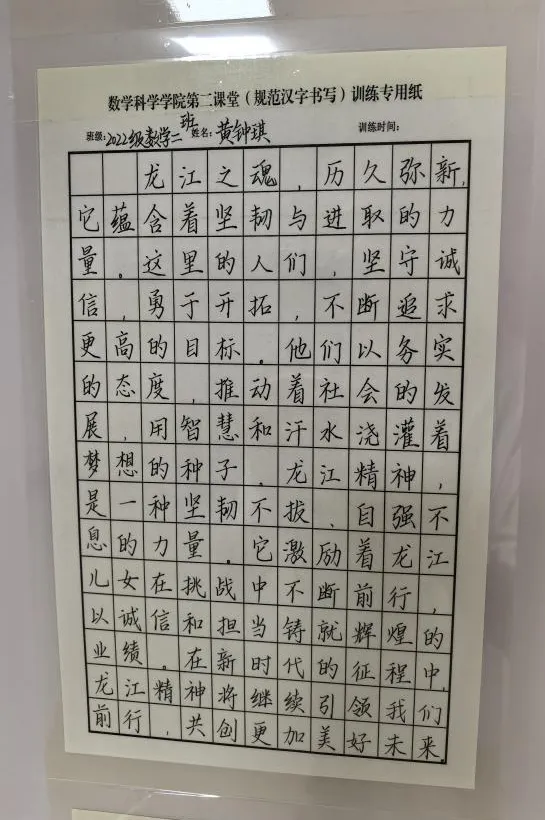 数学科学学院第二课堂（规范汉字书写）训练专用纸
班级：2022级数学二班 姓名：黄钟琪 训练时间：
龙江之魂，历久弥新，
它蕴含着坚韧与进取的力
量。这里的人们，坚守诚
信，勇于开拓，不断追求
更高的目标。他们以务实
的态度，推动着社会的发
展，用智慧和汗水浇灌着
梦想的种子。龙江精神，
是一种坚韧不拔、自强不
息的力量。它激励着龙江
儿女在挑战中不断前行，
以诚信和担当铸就辉煌的
业绩。在新时代的征程中，
龙江精神将继续引领我们
前行，共创更加美好未来。